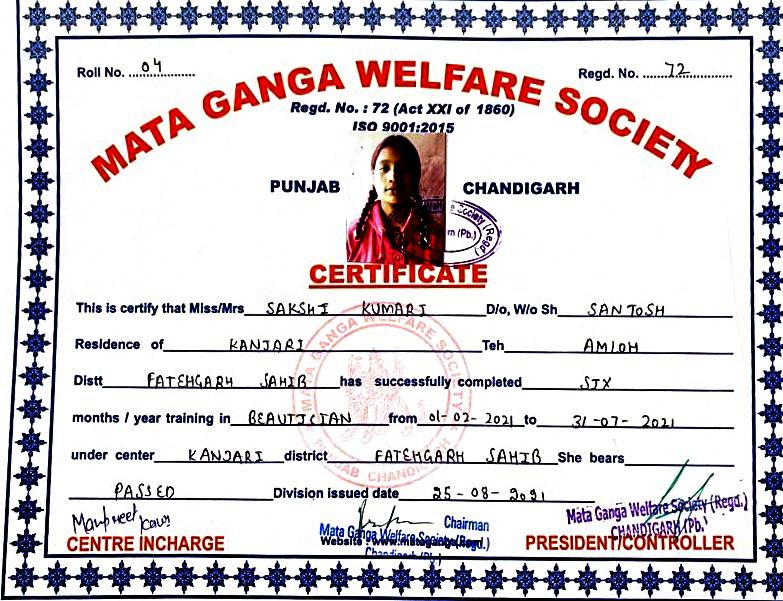 Roll No. 04
Regd. No. 72
MATA GANGA WELFARE SOCIETY
Regd. No. : 72 (Act XXI of 1860)
ISO 9001:2015
PUNJAB CHANDIGARH
CERTIFICATE
This is certify that Miss/Mrs SAKSHI KUMARI D/o, W/o Sh SANTOSH
Residence of KANJARI Teh AMLOH
Distt FATEHGARH SAHIB has successfully completed SIX
months / year training in BEAUTICIAN from 01-02-2021 to 31-07-2021
under center KANJARI district FATEHGARH SAHIB She bears
PASSED Division issued date 25-08-2021
MATA GANGA WELFARE SOCIETY
PUNJAB CHANDIGARH
Manpreet Kaur
Chairman
Mata Ganga Welfare Society (Regd.)
Chandigarh (Pb.)
Mata Ganga Welfare Society (Regd.)
CHANDIGARH (Pb.)
CENTRE INCHARGE
Website :
PRESIDENT/CONTROLLER